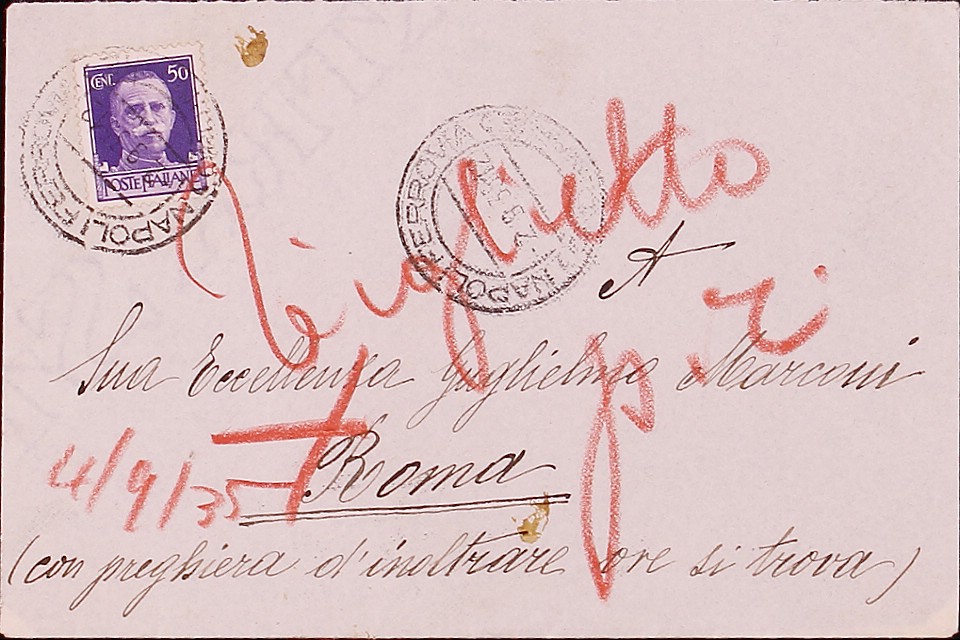 CENT. 50
POSTE ITALIANE
NAPOLI FERROVIA
NAPOLI FERROVIA
Biglietto
p. r.
A
Sua Eccellenza Guglielmo Marconi
Roma
4/9/35
(con preghiera d'inoltrare ove si trova)